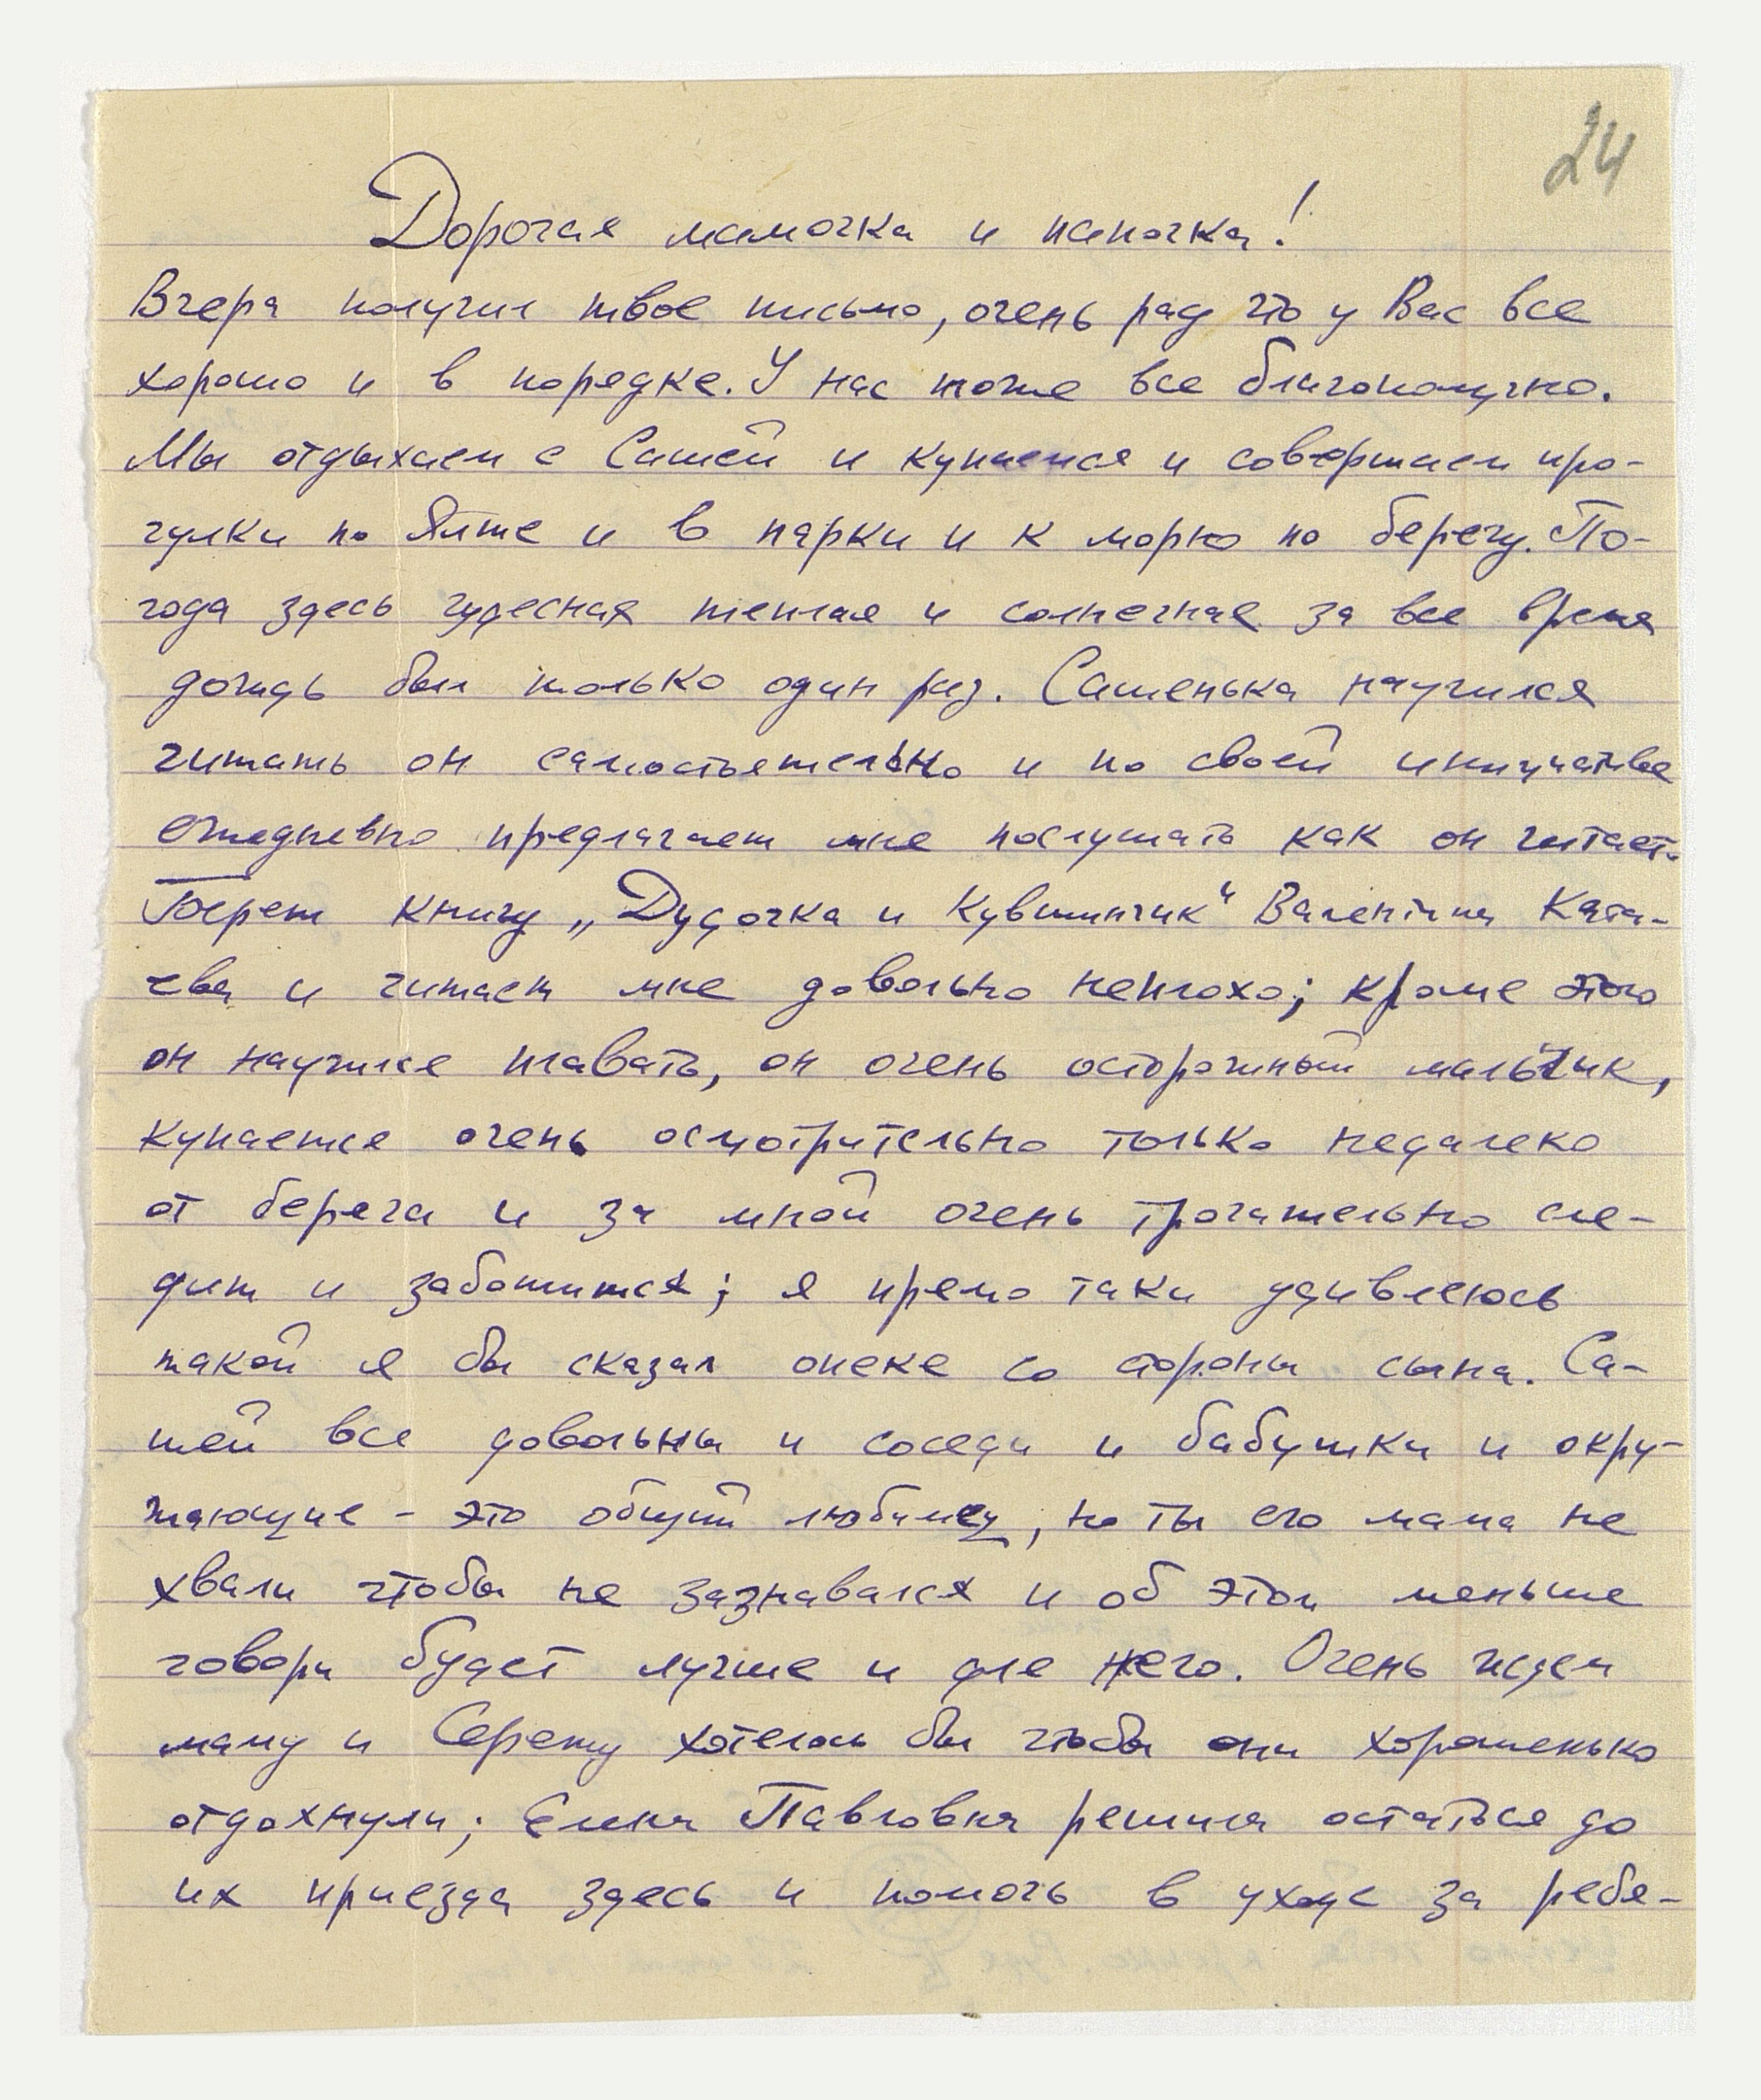 24
Дорогая мамочка и папочка!
Вчера получил твое письмо, очень рад что у Вас все
хорошо и в порядке. У нас тоже все благополучно.
Мы отдыхаем с Сашей и купаемся и совершаем про-
гулки по Ялте и в парки и к морю по берегу. По-
года здесь чудесная теплая и солнечная за все время
дождь был только один раз. Сашенька научился
читать он самостоятельно и по своей инициативе
ежедневно предлагает мне послушать как он читает.
Берет книгу „Дудочка и Кувшинчик" Валентина Ката-
ева и читает мне довольно неплохо; кроме этого
он научился плавать, он очень осторожный мальчик,
купается очень осмотрительно только недалеко
от берега и за мной очень трогательно сле-
дит и заботится; я прямо таки удивляюсь
такой я бы сказал опеке со стороны сына. Са-
шей все довольны и соседи и бабушки и окру-
жающие - это общий любимец, но ты его мама не
хвали чтобы не зазнавался и об этом меньше
говори будет лучше и для него. Очень ждем
маму и Сережу хотелось бы чтобы они хорошенько
отдохнули; Елена Павловна решила остаться до
их приезда здесь и помочь в уходе за ребя-